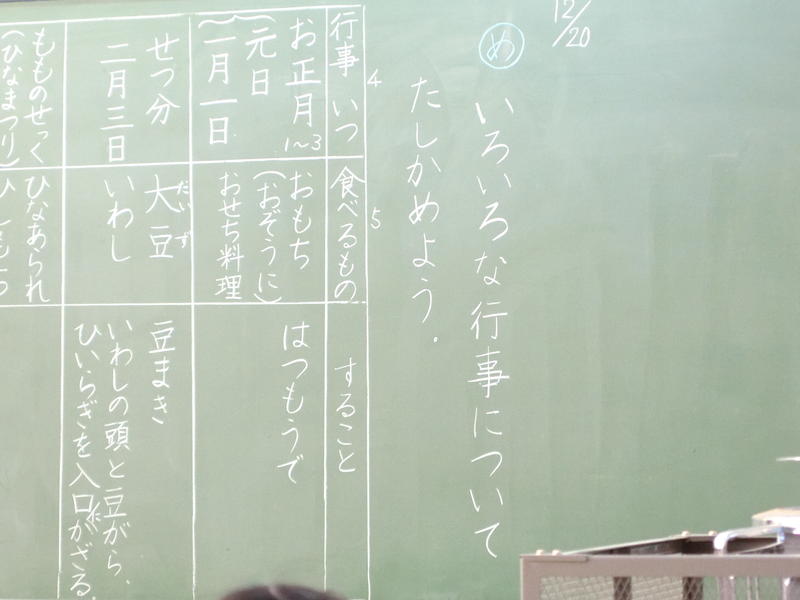 12/20
め
いろいろな行事について
たしかめよう。
4
5
行事 いつ
食べるもの
すること
お正月 1〜3
元日
(一月一日)
おもち
(おぞうに)
おせち料理
はつもうで
せつ分
二月三日
だいず
大豆
いわし
豆まき
いわしの頭と豆がら、
ひいらぎを入口にかざる。
もものせっく
(ひなまつり)
ひなあられ